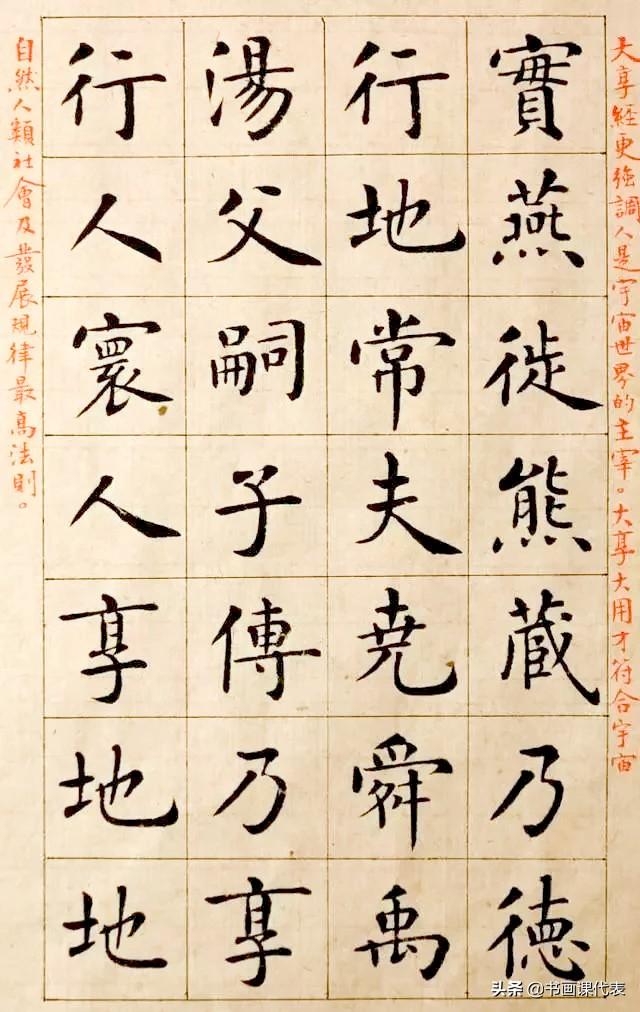 大享經更強調人是宇宙世界的主宰。大享大用才符合宇宙
實燕徙熊藏乃德
行地常夫尧舜禹
湯父嗣子傳乃享
行人寰人享地地
自然人類社會及發展規律最高法則。
头条 @书画课代表